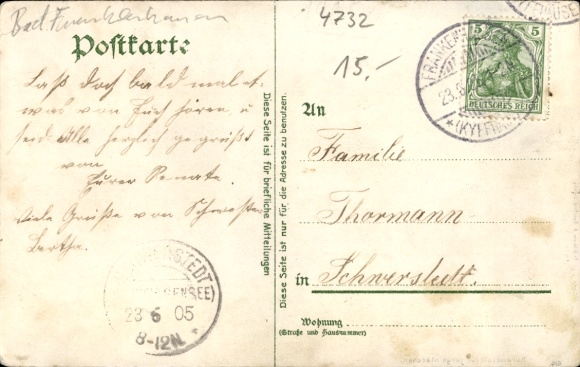 Bad Frankenhausen
4732
15,-
Postkarte
Laßt doch bald mal et.
was von Euch hören, u
seid Alle herzlich gegrüßt
von
Eurer Renate.
Viele Grüße von Schwester
Bertha.
STEDT
23 6 05
8-12N.
Diese Seite ist für briefliche Mitteilungen
Diese Seite ist nur für die Adresse zu benutzen.
FRANKENHAUSEN
23.6
*(KYFFH
5 5
DEUTSCHES REICH
An
Familie
Thormann
in Schwerstedt.
Wohnung
(Straße und Hausnummer)